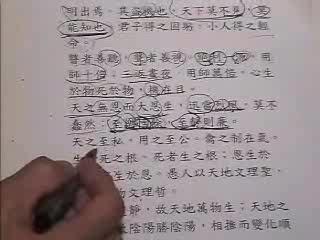 明出焉。其盜機也，天下莫不見，莫
能知也。君子得之固躬，小人得之輕
命。
瞽者善聽，聾者善視。絕利一源，用
師十倍；三返晝夜，用師萬倍。心生
於物死於物，機在目。
天之無恩而大恩生，迅雷烈風，莫不
蠢然；至樂性餘，至靜則廉。
天之至私，用之至公。禽之制在氣。
死之根，死者生之根；恩生於
生於恩。愚人以天地文理聖，
物文理哲。
靜，故天地萬物生；天地之
陰陽勝陰陽，相推而變化順